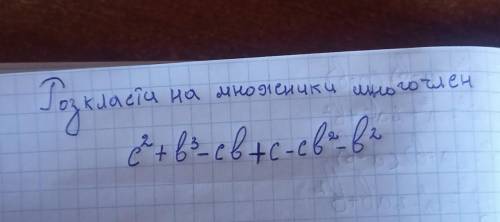 Розкласти на множники многочлен
c²+b³-cb+c-cb²-b²